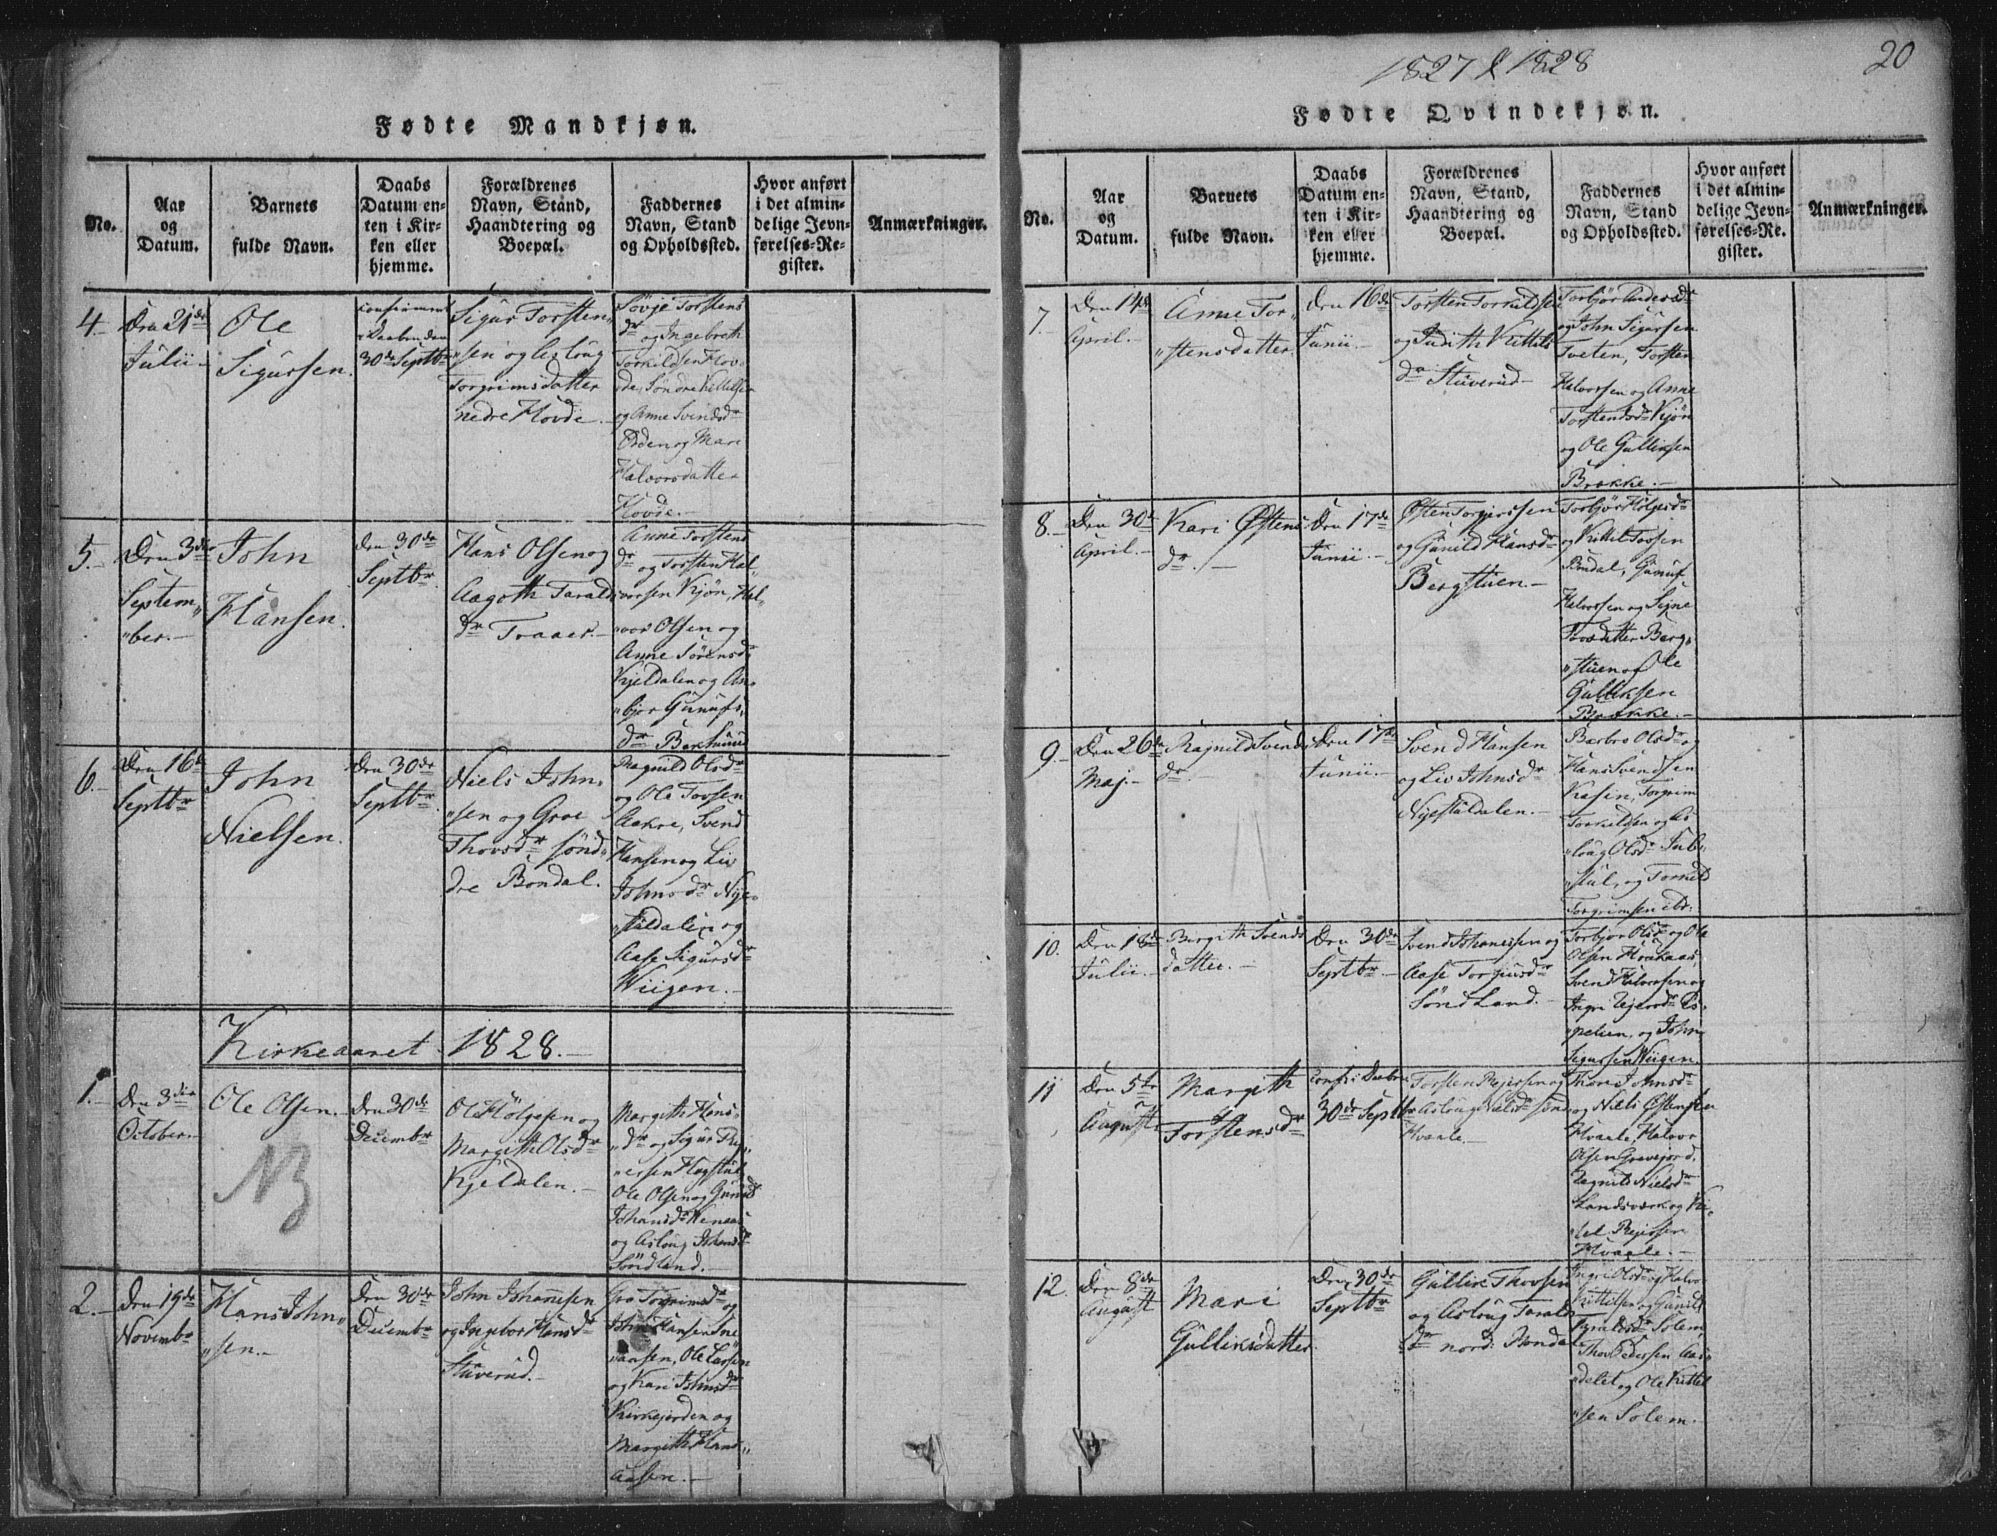 Fødte Mandkjøn.
No.
Aar
og
Datum.
Barnets
fulde Navn.
Daabs
Datum en-
ten i Kir-
ken eller
hjemme.
Forældrenes
Navn, Stand,
Haandtering og
Boepæl.
Faddernes
Navn, Stand
og Opholdssted.
Hvor anført
i det almin-
delige Jevn-
førelses-Re-
gister.
Anmærkninger.
4.
Den 21de
Julii
Ole
Sigursen.
Daaben den
30de Septbr
Sigur Torsten„
„sen og Asloug
Torgrimsdatter
nedre Hovde.
Torstens
dr og Ingebreth
Torkildsen Hov-
de, Søndre Kittelsen
og Anne Svendsdr
og Mari
Halvorsdatter
Hovde.
5.
Den 3de
Septem„
„ber.
John
Hansen.
den 30de
Septbr
Hans Olsen og
Aagoth Tarald
dr Traaer.
Anne Torstens
dr og Torsten Hal„
vorsen Kjøn, Hal„
„vor Olsen og
Anne Sørensdr
Kjeldalen og An„
„bjor Gunufs„
dr
6.
Den 16de
Septbr
John
Nielsen.
Den 30de
Septbr
Niels John„
„sen og Groe
Thovsdr sønd„
dre Bondal.
Ragnild Olsdr
og Ole Tovsen
Aakre, Svend
Hansen og Liv
Johnsdr Nye„
„stuldalen og
Aase Sigursdr
Wiigen.
Kirkeaaret 1828.
1.
Den 3die
October
Ole Olsen.
NB
Den 30de
Decembr
Ole Hølgesen og
Margith Olsdr
Kjeldalen.
Margith Hans„
„dr og Sigur
Ole Olsen og Gunild
og Asloug
Søndland.
2.
Den 19de
Novembr
Hans John„
„sen.
Den 30de
Decembr
John Johannesen
og Ingebor Hansdr
Stuverud.
Gro Torgrimsdr og
John Hansen
Ole Larsen
og Kari Johnsdr
Kirkejorden og
Margith Hans
aasen.
1827 & 1828
20
Fødte Qvindekjøn.
No.
Aar
og
Datum.
Barnets
fulde Navn.
Daabs
Datum en-
ten i Kir-
ken eller
hjemme.
Forældrenes
Navn, Stand,
Haandtering og
Boepæl.
Faddernes
Navn, Stand
og Opholdssted.
Hvor anført
i det almin-
delige Jevn-
førelses-Re-
gister.
Anmærkninger.
7.
Den 14de
April.
Anne Tor„
„stensdatter
den 16de
Junii.
Torsten Torkildsen
og Judith Kittils
dr Stuverud
Torbjør Andersdr
og John Sigursen
Tveten, Torsten
Halvorsen og Anne
Torstensdr Kjøn
og Ole Gulliksen
Brokke.
8.
Den 30de
April.
Kari Østens
dr.
Den 17de
Junii.
Østen Torgiersen
og Gunild Hansdr
Bergstuen
Torbjør Hølgesdr
og Kittil Tovsen
Bondal, Gunuf
Halvorsen og Signe
Berg„
„stuen og Ole
Gulliksen
Brokke.
9.
Den 26de
Maj.
Ragnild Svends
dr.
Den 17de
Junii.
Svend Hansen
og Liv Johnsdr
Nyestuldalen.
Barbro Olsdr og
Hans Svendsen
Kasin, Torgrim
Torkildsen og As
„loug Olsdr
„stul, og
Torgrimsen ibr.
10.
Den 18de
Julii.
Bergith Svends
datter.
Den 30de
Septbr
Svend Johannessen og
Aase Torgiusdr
Søndland.
Torbjør Olsdr og Ole
Olsen
Svend Halvorsen og
og John
Sigursen Wiigen.
11
Den 5te
August
Margith
Torstensdr
30de Septbr
Torsten Rejersen og
Asloug
Hvaale.
Thore Johnsdr
og Niels Østensen
Hvaale, Halvor
Olsen Grovejord,
Nielsdr
Landsværk og Ki„
„tel Rejersen
Hvaale.
12.
Den 8de
August
Mari
Gulliksdatter.
Den 30de
Septbr
Gullik Thovsen
og Asloug Tarald
dr nord:
Ingri Olsdr og Halvor
Kittilsen og Gunild
Solem,
Thov Pedersen Aas„
„delet og Ole Kittel
„sen Solem.